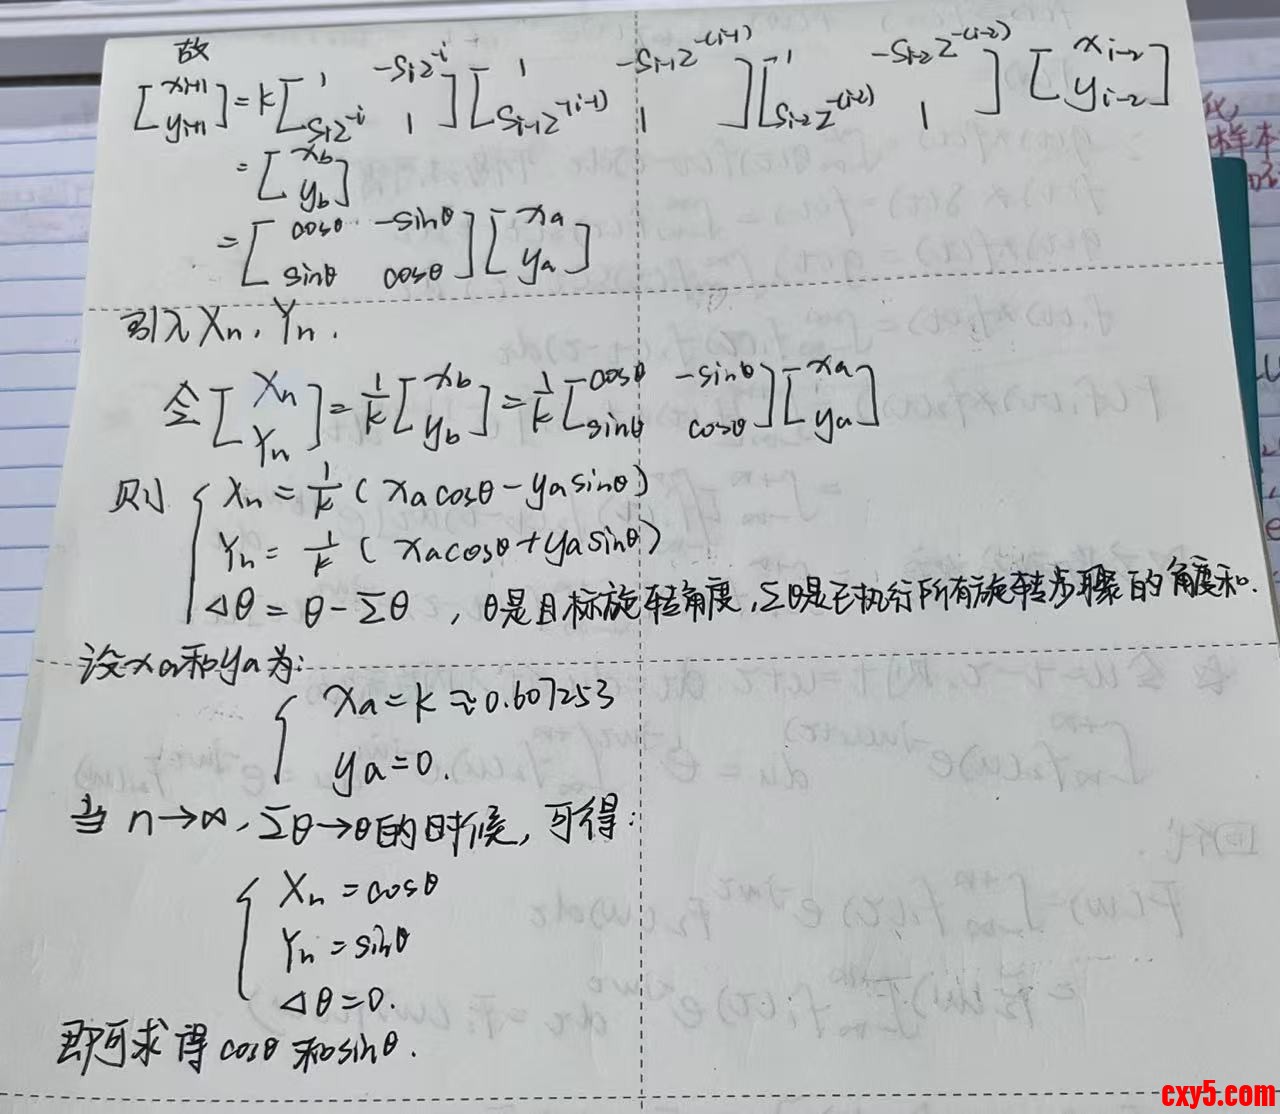 故
[x_{i+1} y_{i+1}] = k [1 -S_i2^{-i} S_i2^{-i} 1] [1 -S_{i-1}2^{-(i-1)} S_{i-1}2^{-(i-1)} 1] [1 -S_{i-2}2^{-(i-2)} S_{i-2}2^{-(i-2)} 1] [x_{i-2} y_{i-2}]
= [x_b y_b]
= [cosθ -sinθ sinθ cosθ] [x_a y_a]
引入 X_n, Y_n.
令 [X_n Y_n] = 1/k [x_b y_b] = 1/k [cosθ -sinθ sinθ cosθ] [x_a y_a]
则 { X_n = 1/k ( x_a cosθ - y_a sinθ )
Y_n = 1/k ( x_a cosθ + y_a sinθ )
⊿θ = θ - Σθ , θ是目标旋转角度, Σθ是已执行所有旋转步骤的角度和.
设 x_a 和 y_a 为:
{ x_a = k ≈ 0.607253
y_a = 0.
当 n→∞, Σθ→θ的时候, 可得:
{ X_n = cosθ
Y_n = sinθ
⊿θ = 0.
即可求得 cosθ 和 sinθ.
样本
cxy5.com